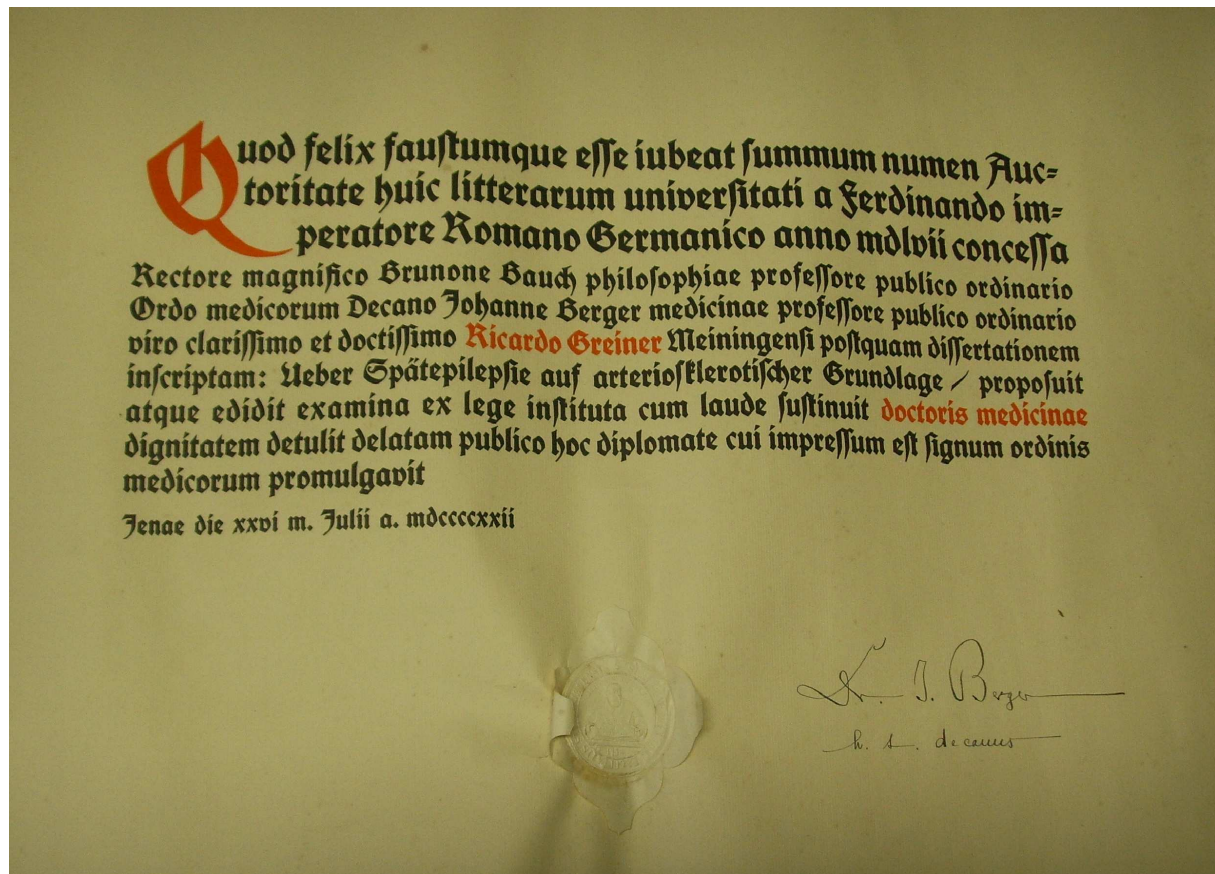 Quod felix faustumque esse iubeat summum numen Auc=
toritate huic litterarum universitati a Ferdinando im=
peratore Romano Germanico anno mdlvii concessa
Rectore magnifico Brunone Bauch philosophiae professore publico ordinario
Ordo medicorum Decano Johanne Berger medicinae professore publico ordinario
viro clarissimo et doctissimo Ricardo Greiner Meiningensi postquam dissertationem
inscriptam: Ueber Spätepilepsie auf arteriosklerotischer Grundlage / proposuit
atque edidit examina ex lege instituta cum laude sustinuit doctoris medicinae
dignitatem detulit delatam publico hoc diplomate cui impressum est signum ordinis
medicorum promulgavit
Jenae die xxvi m. Julii a. mdccccxxii
Dr. J. Berger
h. t. decanus